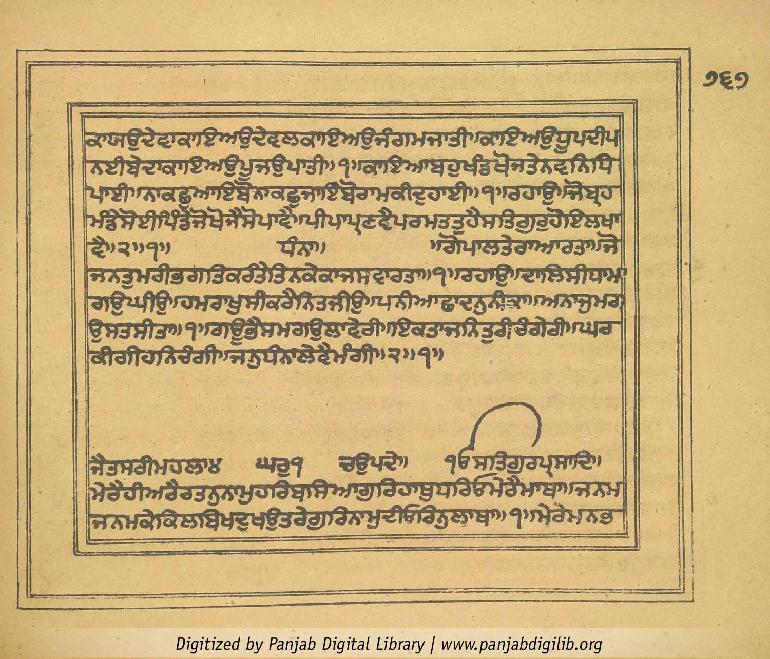 ੭੬੭
ਕਾਯਉਦੇਵਾਕਾਇਅਉਦੇਵਲਕਾਇਅਉਜੰਗਮਜਾਤੀ॥ਕਾਇਅਉਧੂਪਦੀਪ
ਨਈਬੇਦਾਕਾਇਅਉਪੂਜਉਪਾਤੀ॥੧॥ਕਾਇਆਬਹੁਖੰਡਖੋਜਤੇਨਵਨਿਧਿ
ਪਾਈ॥ਨਾਕਛੁਆਇਬੋਨਾਕਛੁਜਾਇਬੋਰਾਮਕੀਦੁਹਾਈ॥੧॥ਰਹਾਉ॥ਜੋਬ੍ਰਹ
ਮੰਡੇਸੋਈਪਿੰਡੇਜੋਖੋਜੈਸੋਪਾਵੈ॥ਪੀਪਾਪ੍ਰਣਵੈਪਰਮਤਤੁਹੈਸਤਿਗੁਰੁਹੋਇਲਖਾ
ਵੈ॥੨॥੧॥ ਧੰਨਾ॥ ॥ਗੋਪਾਲਤੇਰਾਆਰਤਾ॥ਜੋ
ਜਨਤੁਮਰੀਭਗਤਿਕਰੰਤੇਤਿਨਕੇਕਾਜਸਵਾਰਤਾ॥੧॥ਰਹਾਉ॥ਦਾਲਿਸੀਧਾਮਾ
ਗਉਘੀਉ॥ਹਮਰਾਖੁਸੀਕਰੈਨਿਤਜੀਉ॥ਪਨੀਆਛਾਦਨੁਨੀਕਾ॥ਅਨਾਜੁਮਗ
ਉਸਤਸੀਕਾ॥੧॥ਗਊਭੈਸਮਗਉਲਾਵੇਰੀ॥ਇਕਤਾਜਨਿਤੁਰੀਚੰਗੇਰੀ॥ਘਰ
ਕੀਗੀਹਨਿਚੰਗੀ॥ਜਨੁਧੰਨਾਲੇਵੈਮੰਗੀ॥੨॥੧॥
ਜੈਤਸਰੀਮਹਲਾ੪ ਘਰੁ੧ ਚਉਪਦੇ॥ ੴਸਤਿਗੁਰਪ੍ਰਸਾਦਿ॥
ਮੇਰੈਹੀਅਰੈਰਤਨੁਨਾਮੁਹਰਿਬਸਿਆਗੁਰਿਹਾਥੁਧਰਿਓਮੇਰੈਮਾਥਾ॥ਜਨਮ
ਜਨਮਕੇਕਿਲਬਿਖਦੁਖਉਤਰੇਗੁਰਿਨਾਮੁਦੀਓਰਿਨੁਲਾਥਾ॥੧॥ਮੇਰੇਮਨਭ
Digitized by Panjab Digital Library | www.panjabdigilib.org